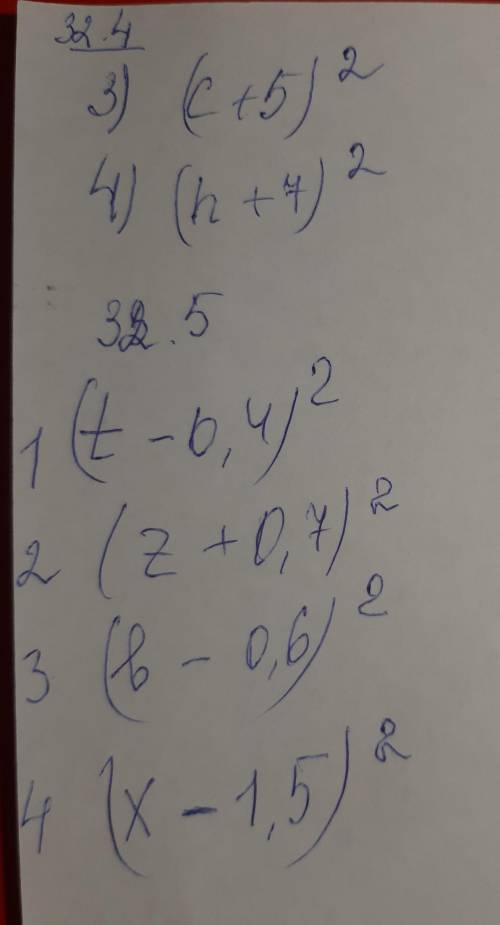 32.4
3) (c+5)²
4) (h+7)²
32.5
1 (t-0,4)²
2 (z+0,7)²
3 (b-0,6)²
4 (x-1,5)²